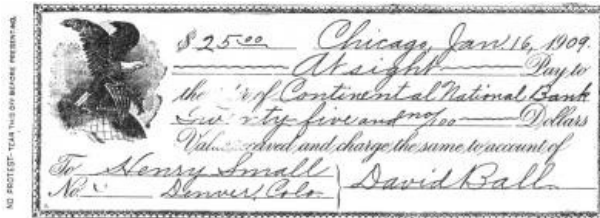 NO PROTEST - TEAR THIS OFF BEFORE PRESENTING.
$25.00 Chicago, Jan 16, 1909.
At sight Pay to
the of Continental National Bank
five and no/100 Dollars
and charge the same to account of
To Henry Small
No. Denver, Colo. David Ball